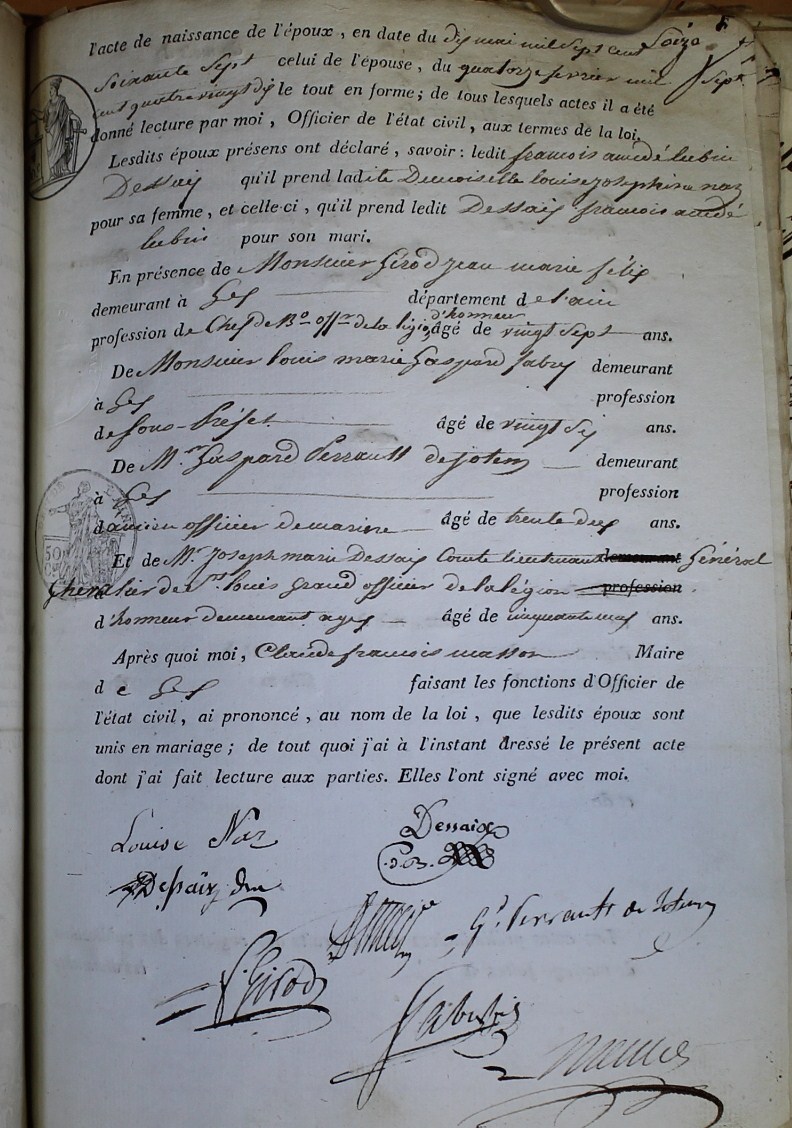 l'acte de naissance de l'époux, en date du dix mai mil sept cent
soixante sept celui de l'épouse, du quatorze fevrier mil sept
cent quatre vingt dix le tout en forme; de tous lesquels actes il a été
donné lecture par moi, Officier de l'état civil, aux termes de la loi.
Lesdits époux présens ont déclaré, savoir: ledit francois amedé lubin
Dessaix qu'il prend ladite Demoiselle louise josephine naz
pour sa femme, et celle-ci, qu'il prend ledit Dessaix francois amedé
lubin pour son mari.
En présence de Monsieur Girod jean marie félix
demeurant à Gex département de l'ain
d'honneur
profession de Chef de Bon offr de la légion âgé de vingt sept ans.
De Monsieur louis marie Gaspard fabry demeurant
à Gex profession
de sous-Préfet âgé de vingt six ans.
De Mr Gaspard Perrault de jotem demeurant
à Gex profession
d'ancien officier de marine âgé de trente deux ans.
Et de Mr Joseph marie Dessaix Comte lieutenant demeurant Général
Chevalier de St louis grand officier de la légion profession
d'honneur demeurant a gex âgé de cinquante ans.
Après quoi moi, Claude francois masson Maire
de Gex faisant les fonctions d'Officier de
l'état civil, ai prononcé, au nom de la loi, que lesdits époux sont
unis en mariage; de tout quoi j'ai à l'instant dressé le présent acte
dont j'ai fait lecture aux parties. Elles l'ont signé avec moi.
Louise Naz Dessaix
Dessaix
Gd Perrault de Jotem
f. Girod
fabry